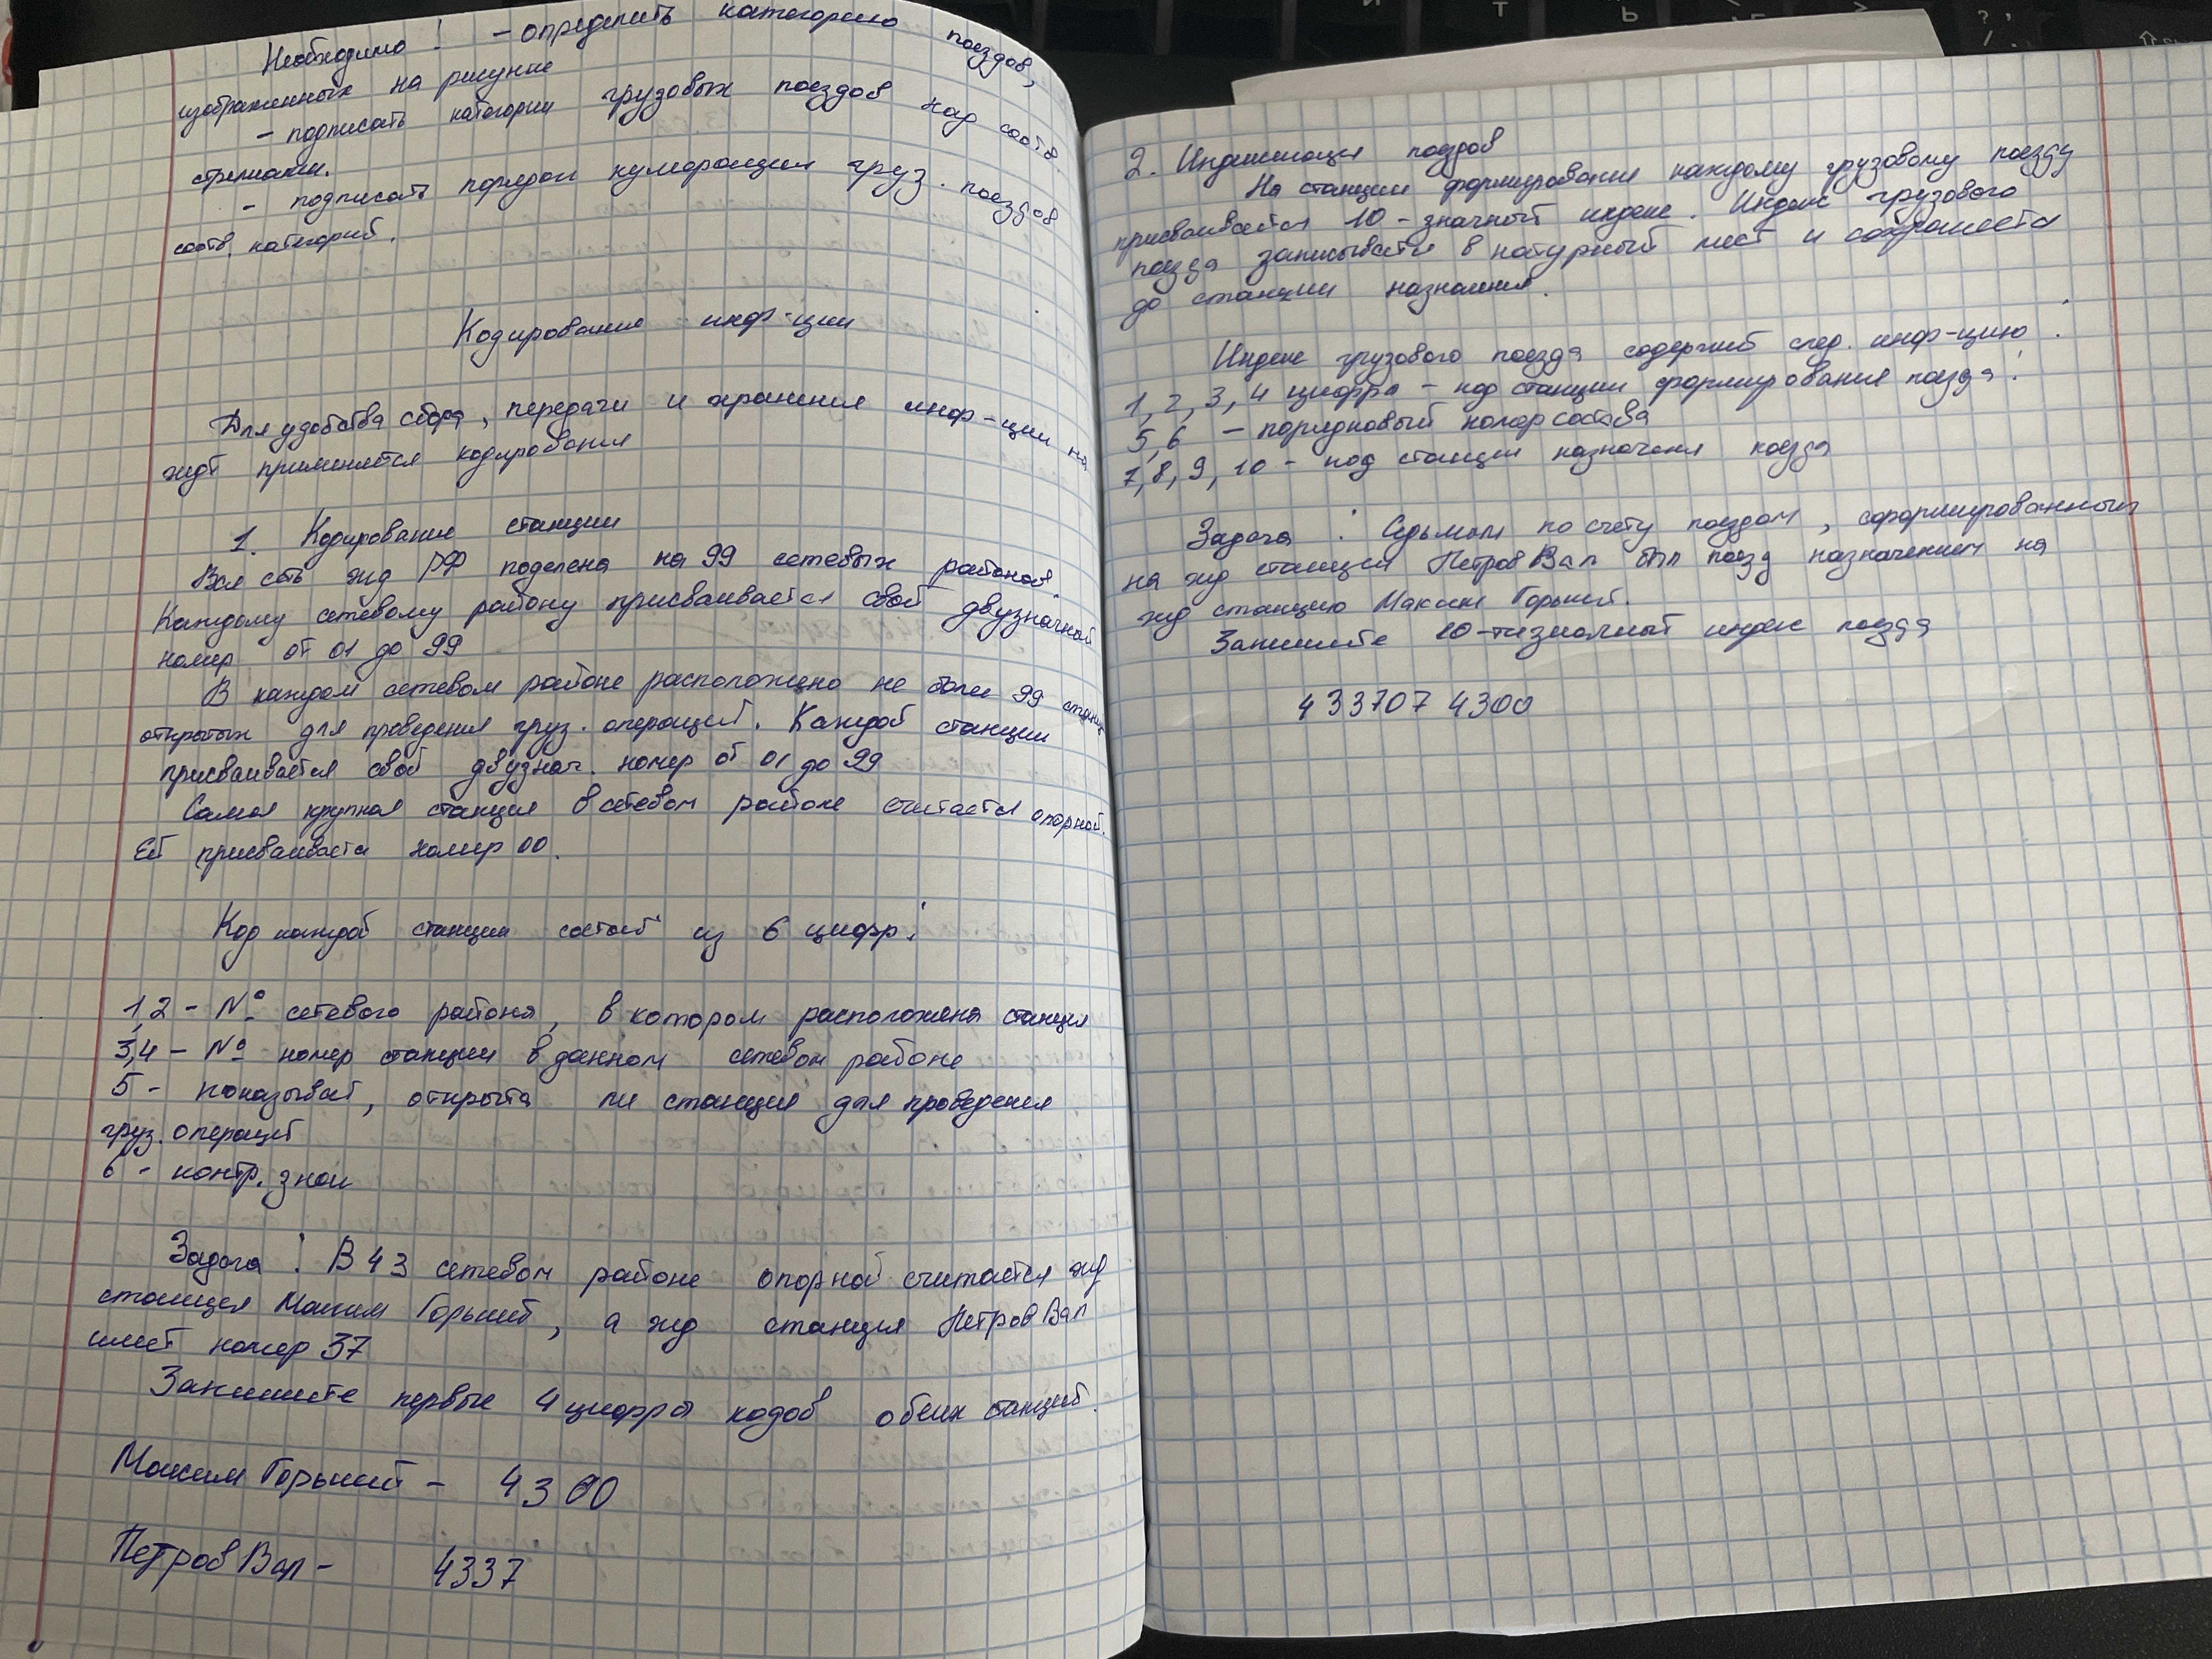 Необходимо: - определить категорию поездов,
изображенных на рисунке
- подписать категории грузовых поездов над соотв
стрелками.
- подписать порядок нумерации груз. поездов
соотв. категорий.
Кодирование инф-ции
Для удобства сбора, передачи и хранения инф-ции на
ждт применяется кодирования
1. Кодирование станции
Вся сеть жд РФ поделена на 99 сетевых районов.
Каждому сетевому району присваивается свой двузначной
номер от 01 до 99
В каждом сетевом районе расположено не более 99 станц
открытых для проведения груз. операций. Каждой станции
присваивается свой двузнач. номер от 01 до 99
Самая крупная станция в сетевом районе считается опорной.
Ей присваивается номер 00.
Код каждой станции состоит из 6 цифр:
1,2 - № сетевого района, в котором расположена станция
3,4 - № номер станции в данном сетевом районе
5 - показывает, открыта ли станция для проведения
груз. операций
6 - контр. знак
Задача: В 43 сетевом районе опорной считается жд
станция Максим Горький, а жд станция Петров Вал
имеет номер 37
Запишите первые 4 цифры кодов обеих станций.
Максим Горький - 4300
Петров Вал - 4337
2. Индексация поездов
На станции формирования каждому грузовому поезду
присваивается 10-значный индекс. Индекс грузового
поезда записывается в натурный лист и сохраняется
до станции назначения.
Индекс грузового поезда содержит след. инф-цию:
1, 2, 3, 4 цифра - код станции формирования поезда:
5, 6 - порядковый номер состава
7, 8, 9, 10 - код станции назначения поезда
Задача: Седьмым по счету поездом, сформированным
на жд станции Петров Вал был поезд назначением на
жд станцию Максим Горький.
Запишите 10-тизначный индекс поезда
433707 4300